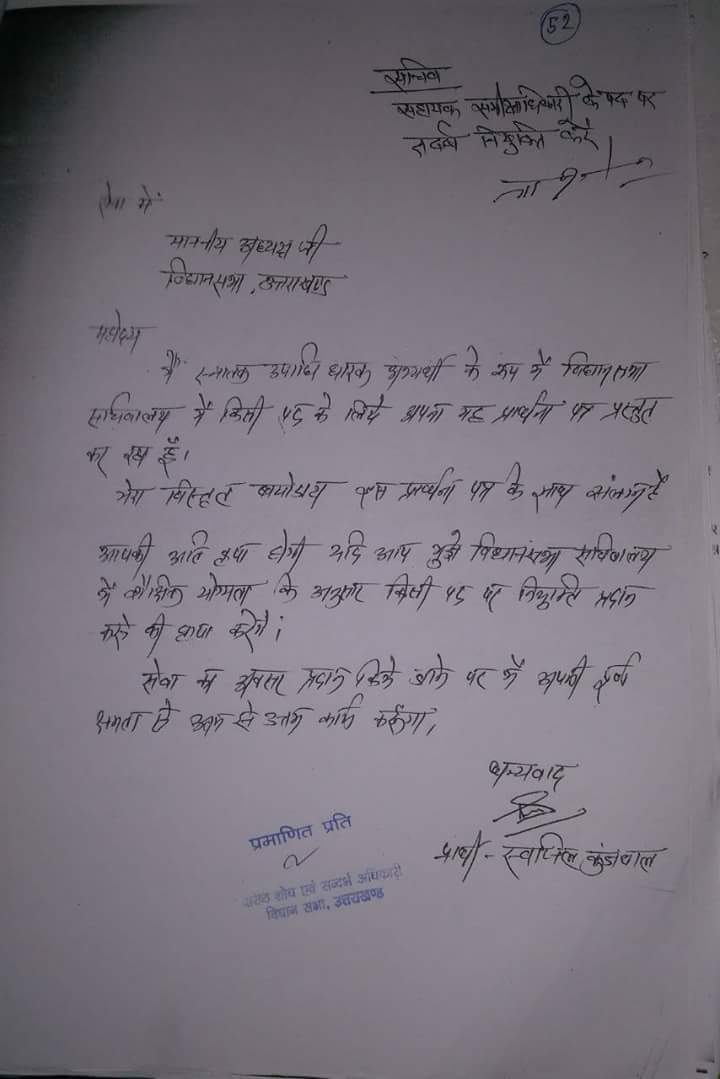 52
सचिव
सहायक समीक्षाधिकारी के पद पर
तदर्थ नियुक्ति करें।
सेवा में
माननीय अध्यक्ष जी
विधानसभा, उत्तराखण्ड
महोदय
मैं स्नातक उपाधि धारक अभ्यर्थी के रूप में विधानसभा
सचिवालय में किसी पद के लिये अपना यह प्रार्थना पत्र प्रस्तुत
कर रहा हूँ।
मेरा विस्तृत बायोडाटा इस प्रार्थना पत्र के साथ संलग्न है
आपकी अति कृपा होगी यदि आप मुझे विधानसभा सचिवालय
में शैक्षिक योग्यता के अनुसार किसी पद पर नियुक्ति प्रदान
करने की कृपा करेंगे।
सेवा का अवसर प्रदान किये जाने पर मैं अपनी पूर्ण
क्षमता से उत्तम कार्य करूँगा,
धन्यवाद
प्रार्थी - स्वप्निल कुंडवाल
प्रमाणित प्रति
शोध एवं सन्दर्भ अधिकारी
विधान सभा, उत्तराखण्ड